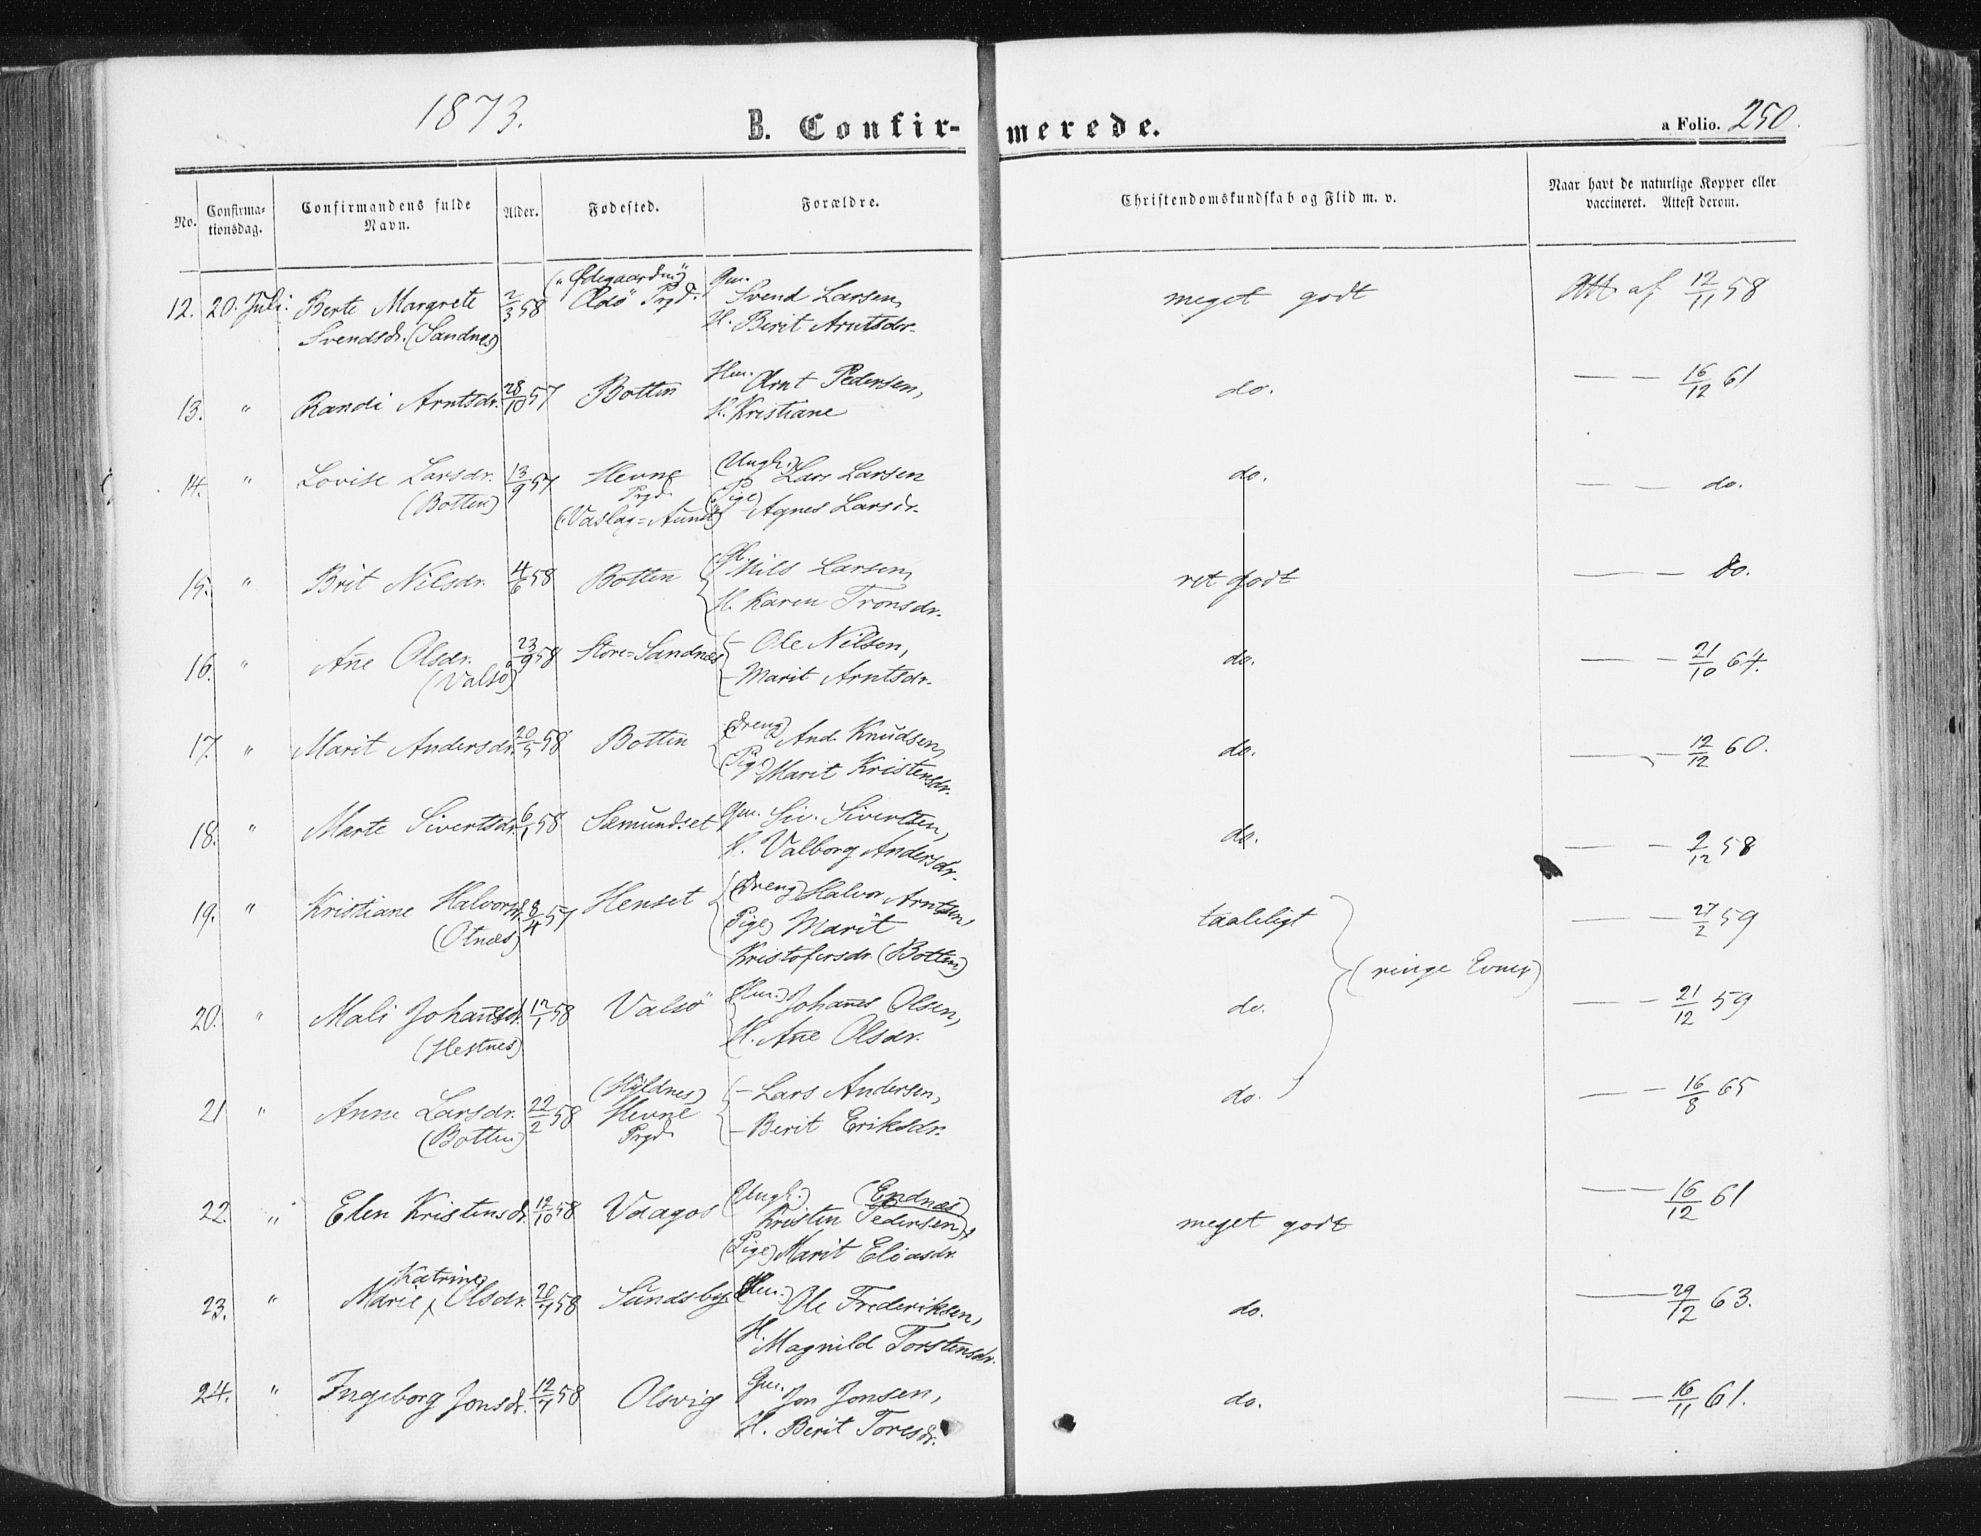 1873.
B. Confir- merede.
a Folio. 250.
No. Confirma-tionsdag. Confirmandens fulde Navn. Alder. Fødested. Forældre. Christendomskundskab og Flid m. v. Naar havt de naturlige Kopper eller vaccineret. Attest derom.
("Ødegaarden") Gm.
12. 20. Juli. Berte Margrete 2/3 58 Prgd. Svend Larsen, meget godt Att af 12/11 58
Svendsdr. (Sandnes) H. Berit Arntsdr.
13. " Randi Arntsdr. 28/10 57 Botten Hm. Arnt Pedersen, do. — — 16/12 61
H. Kristiane
14. " Lovise Larsdr. 13/9 57 Hevne (Ungk.) Lars Larsen do. — — do.
(Botten) Prgd. (Pige) Agnes Larsdr.
("Vaslag=Aunet")
15. " Brit Nilsdr. 4/6 58 Botten Nils Larsen, ret godt — — do.
H. Karen Tronsdr.
16. " Ane Olsdr. 23/9 58 Store=Sandnes — Ole Nilsen, do. — — 21/10 64.
(Valsö) — Marit Arntsdr.
17. " Marit Andersdr. 20/5 58 Botten (Dreng) And. Knudsen, do. — — 12/12 60.
(Pige) Marit Kristensdr.
18. " Marte Sivertsdr. 6/1 58 Sæmundset Gm. Siv. Sivertsen, do. — — 2/12 58
H. Valborg Andersdr.
19. " Kristiane Halvorsdr. 8/4 57 Henset (Dreng) Halvor Arntsen, taaleligt — — 27/2 59
(Otnæs) (Pige) Marit
Kristofersdr. (Botten) (ringe Evner)
20. " Mali Johansdr. 12/1 58 Valsö (Hm.) Johanes Olsen, do. — — 21/12 59
(Hestnes) H. Ane Olsdr.
(Hyldnes)
21 " Anne Larsdr. 22/2 58 Hevne — Lars Andersen, do. — — 16/8 65
(Botten) Prgd. — Berit Eriksdr.
22. " Elen Kristensdr. 12/10 58 Vaagos (Ungk.) (Endnæs) meget godt — — 16/12 61
Kristen Pedersen,
(Pige) Marit Eliasdr.
Katrine
23. " Marie Olsdr. 20/7 58 Sundsby (Hm.) Ole Frederiksen, do. — 29/12 63.
H. Magnild Torstensdr.
24. " Ingeborg Jonsdr. 12/7 58 Olsvig Gm. Jon Jonsen, do. — — 16/11 61.
H. Berit Toresdr.